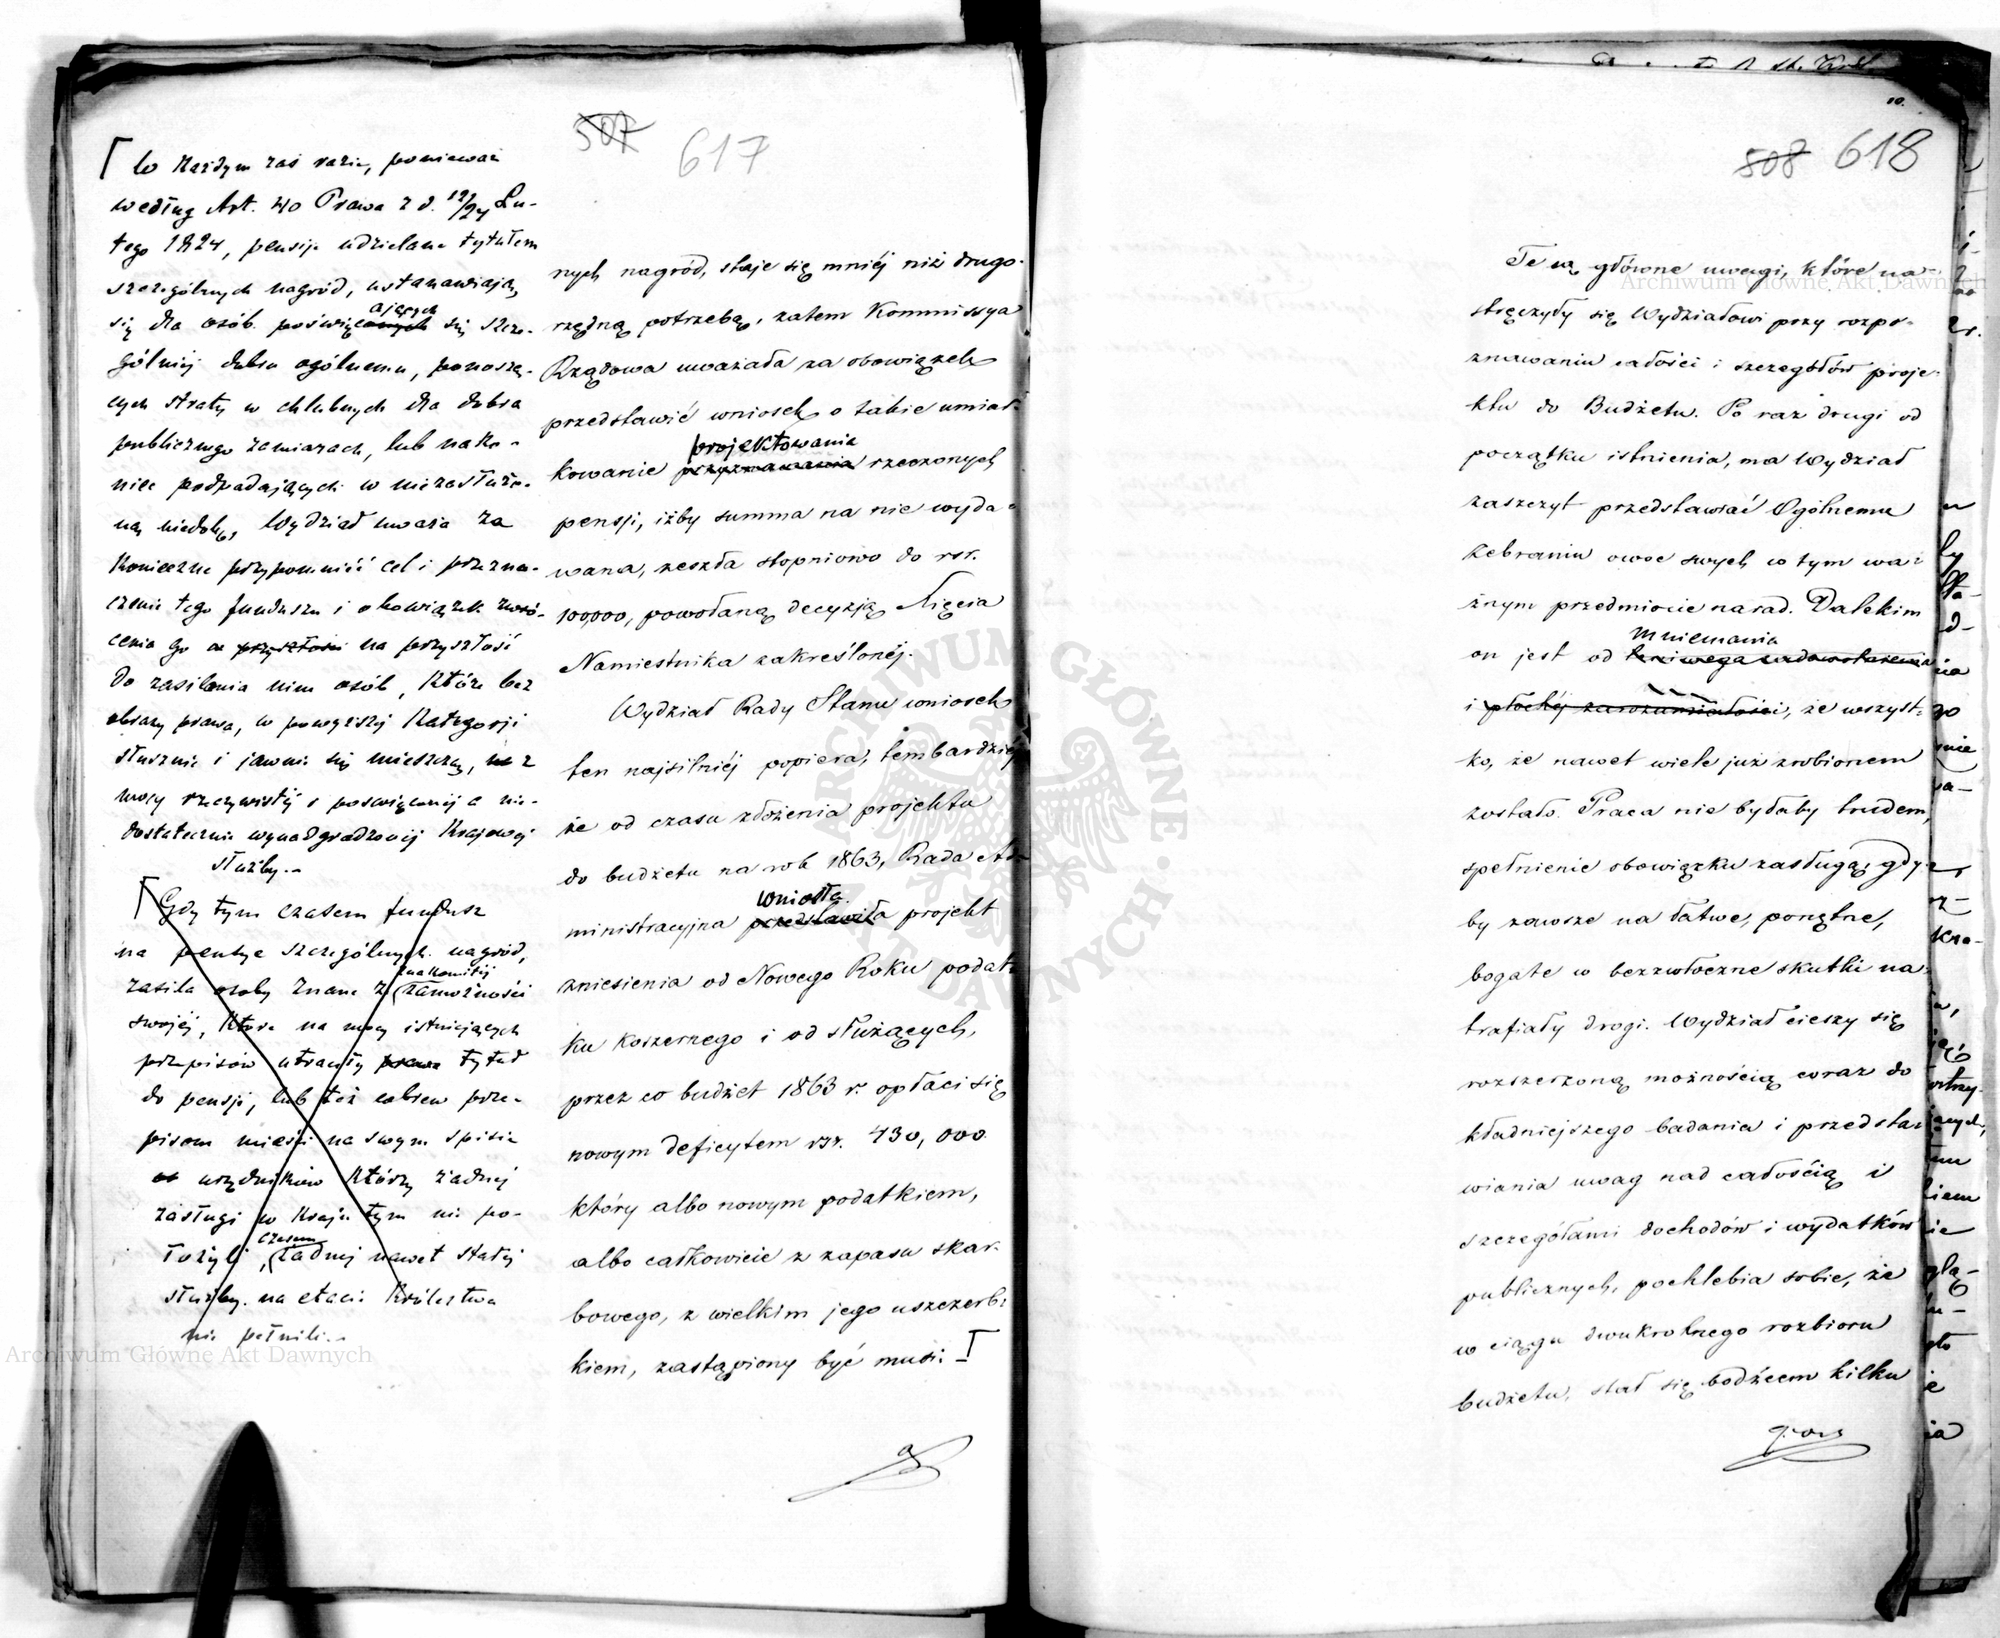 507 617
W każdym zaś razie, ponieważ
według Art. 40 Prawa z d. 12/24 Lu-
tego 1824, pensje udzielane tytułem
szczególnych nagród, ustanawiają
się dla osób poświęcających się szcze-
gólniej dobru ogólnemu, ponoszą-
cych straty w chlubnych dla dobra
publicznego zamiarach, lub nako-
niec podpadających w niezasłużo-
ną niedolę, Wydział uważa za
konieczne przypomnieć cel i przezna-
czenie tego funduszu i obowiązek zwró-
cenia go na przyszłość
do zasilania nim osób, które bez
obrazy prawa, w powyższej kategorji
słusznie i jawnie się mieszczą, z
mocy rzeczywistej i poświęconej a nie-
dostatecznie wynadgradzonej krajowej
służby.-
Gdy tym czasem fundusz
na pensye szczególnych nagród,
zasila osoby znane z znakomitej zamożności
swojéj, które na mocy istniejących
przepisów utraciły prawa tytuł
do pensji, lub też wbrew prze-
pisom mieści na swym spisie
urzędników którzy żadnej
zasługi w kraju tym nie po-
łożyli, czasem żadnej nawet stałej
służby na etacie Królestwa
nie pełnili.-
nych nagród, staje się mniéj niż drugo-
rzędną potrzebą, zatem Kommissya
Rządowa uważała za obowiązek
przedstawić wniosek o takie umiar-
kowanie projektowania przyznawania rzeczonych
pensji, iżby summa na nie wyda-
wana, zeszła stopniowo do rsr.
100,000, powołaną decyzją Xięcia
Namiestnika zakreślonéj.
Wydział Rady Stanu wniosek
ten najsilniéj popiera, tembardziéj
że od czasu złożenia projektu
do budżetu na rok 1863, Rada Ad-
ministracyjna wniosła przedstawiła projekt
zniesienia od Nowego Roku podat-
ku koszernego i od służących,
przez co budżet 1863 r. opłaci się
nowym deficytem rsr. 430,000.
który albo nowym podatkiem,
albo całkowicie z zapasu skar-
bowego, z wielkim jego uszczerb-
kiem, zastąpiony być musi.
10.
508 618
Te są główne uwagi, które na-
stręczyły się Wydziałowi przy rozpo-
znawaniu całości i szczegółów proje-
ktu do Budżetu. Po raz drugi od
początku istnienia, ma Wydział
zaszczyt przedstawiać Ogólnemu
Zebraniu owoc swych w tym wa-
żnym przedmiocie narad. Dalekim
on jest od mniemania leniwego zadowolenia
i płochéj zarozumiałości, że wszyst-
ko, że nawet wiele już zrobionem
zostało. Praca nie byłaby trudem,
spełnienie obowiązku zasługą, gdy-
by zawsze na łatwe, ponętne,
bogate w bezzwłoczne skutki na-
trafiały drogi. Wydział cieszy się
rozszerzoną możnością coraz do
kładniejszego badania i przedsta-
wiania uwag nad całością i
szczegółami dochodów i wydatków
publicznych, pochlebia sobie, że
w ciągu dwukrotnego rozbioru
budżetu, stał się bodźcem kilku
Archiwum Główne Akt Dawnych
Archiwum Główne Akt Dawnych
ARCHIWUM GŁÓWNE AKT DAWNYCH